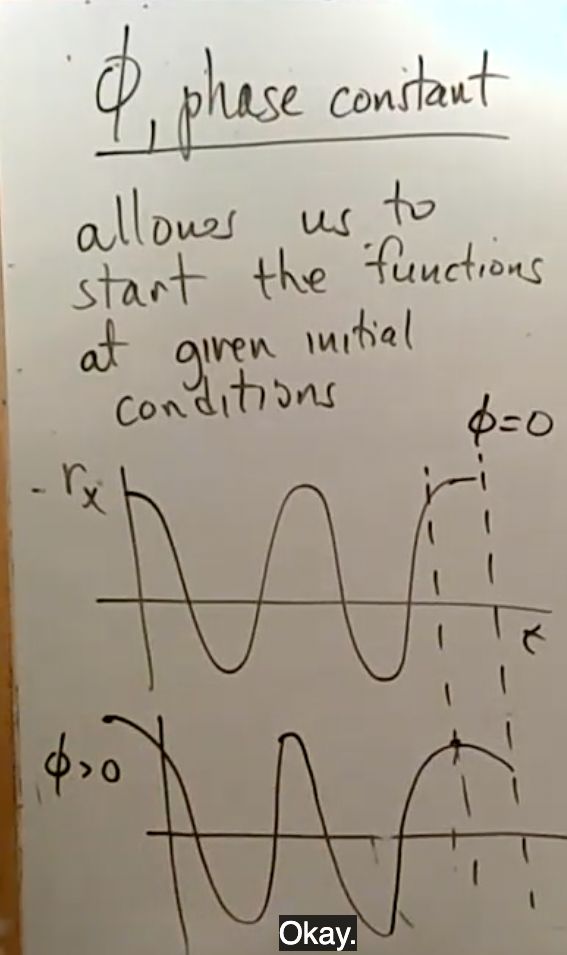 ϕ, phase constant
allows us to
start the functions
at given initial
conditions
ϕ=0
rx
t
ϕ>0
Okay.